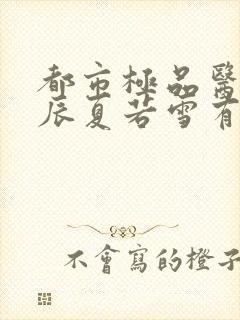 都市極品醫
辰夏若雪有
不會寫的橙子